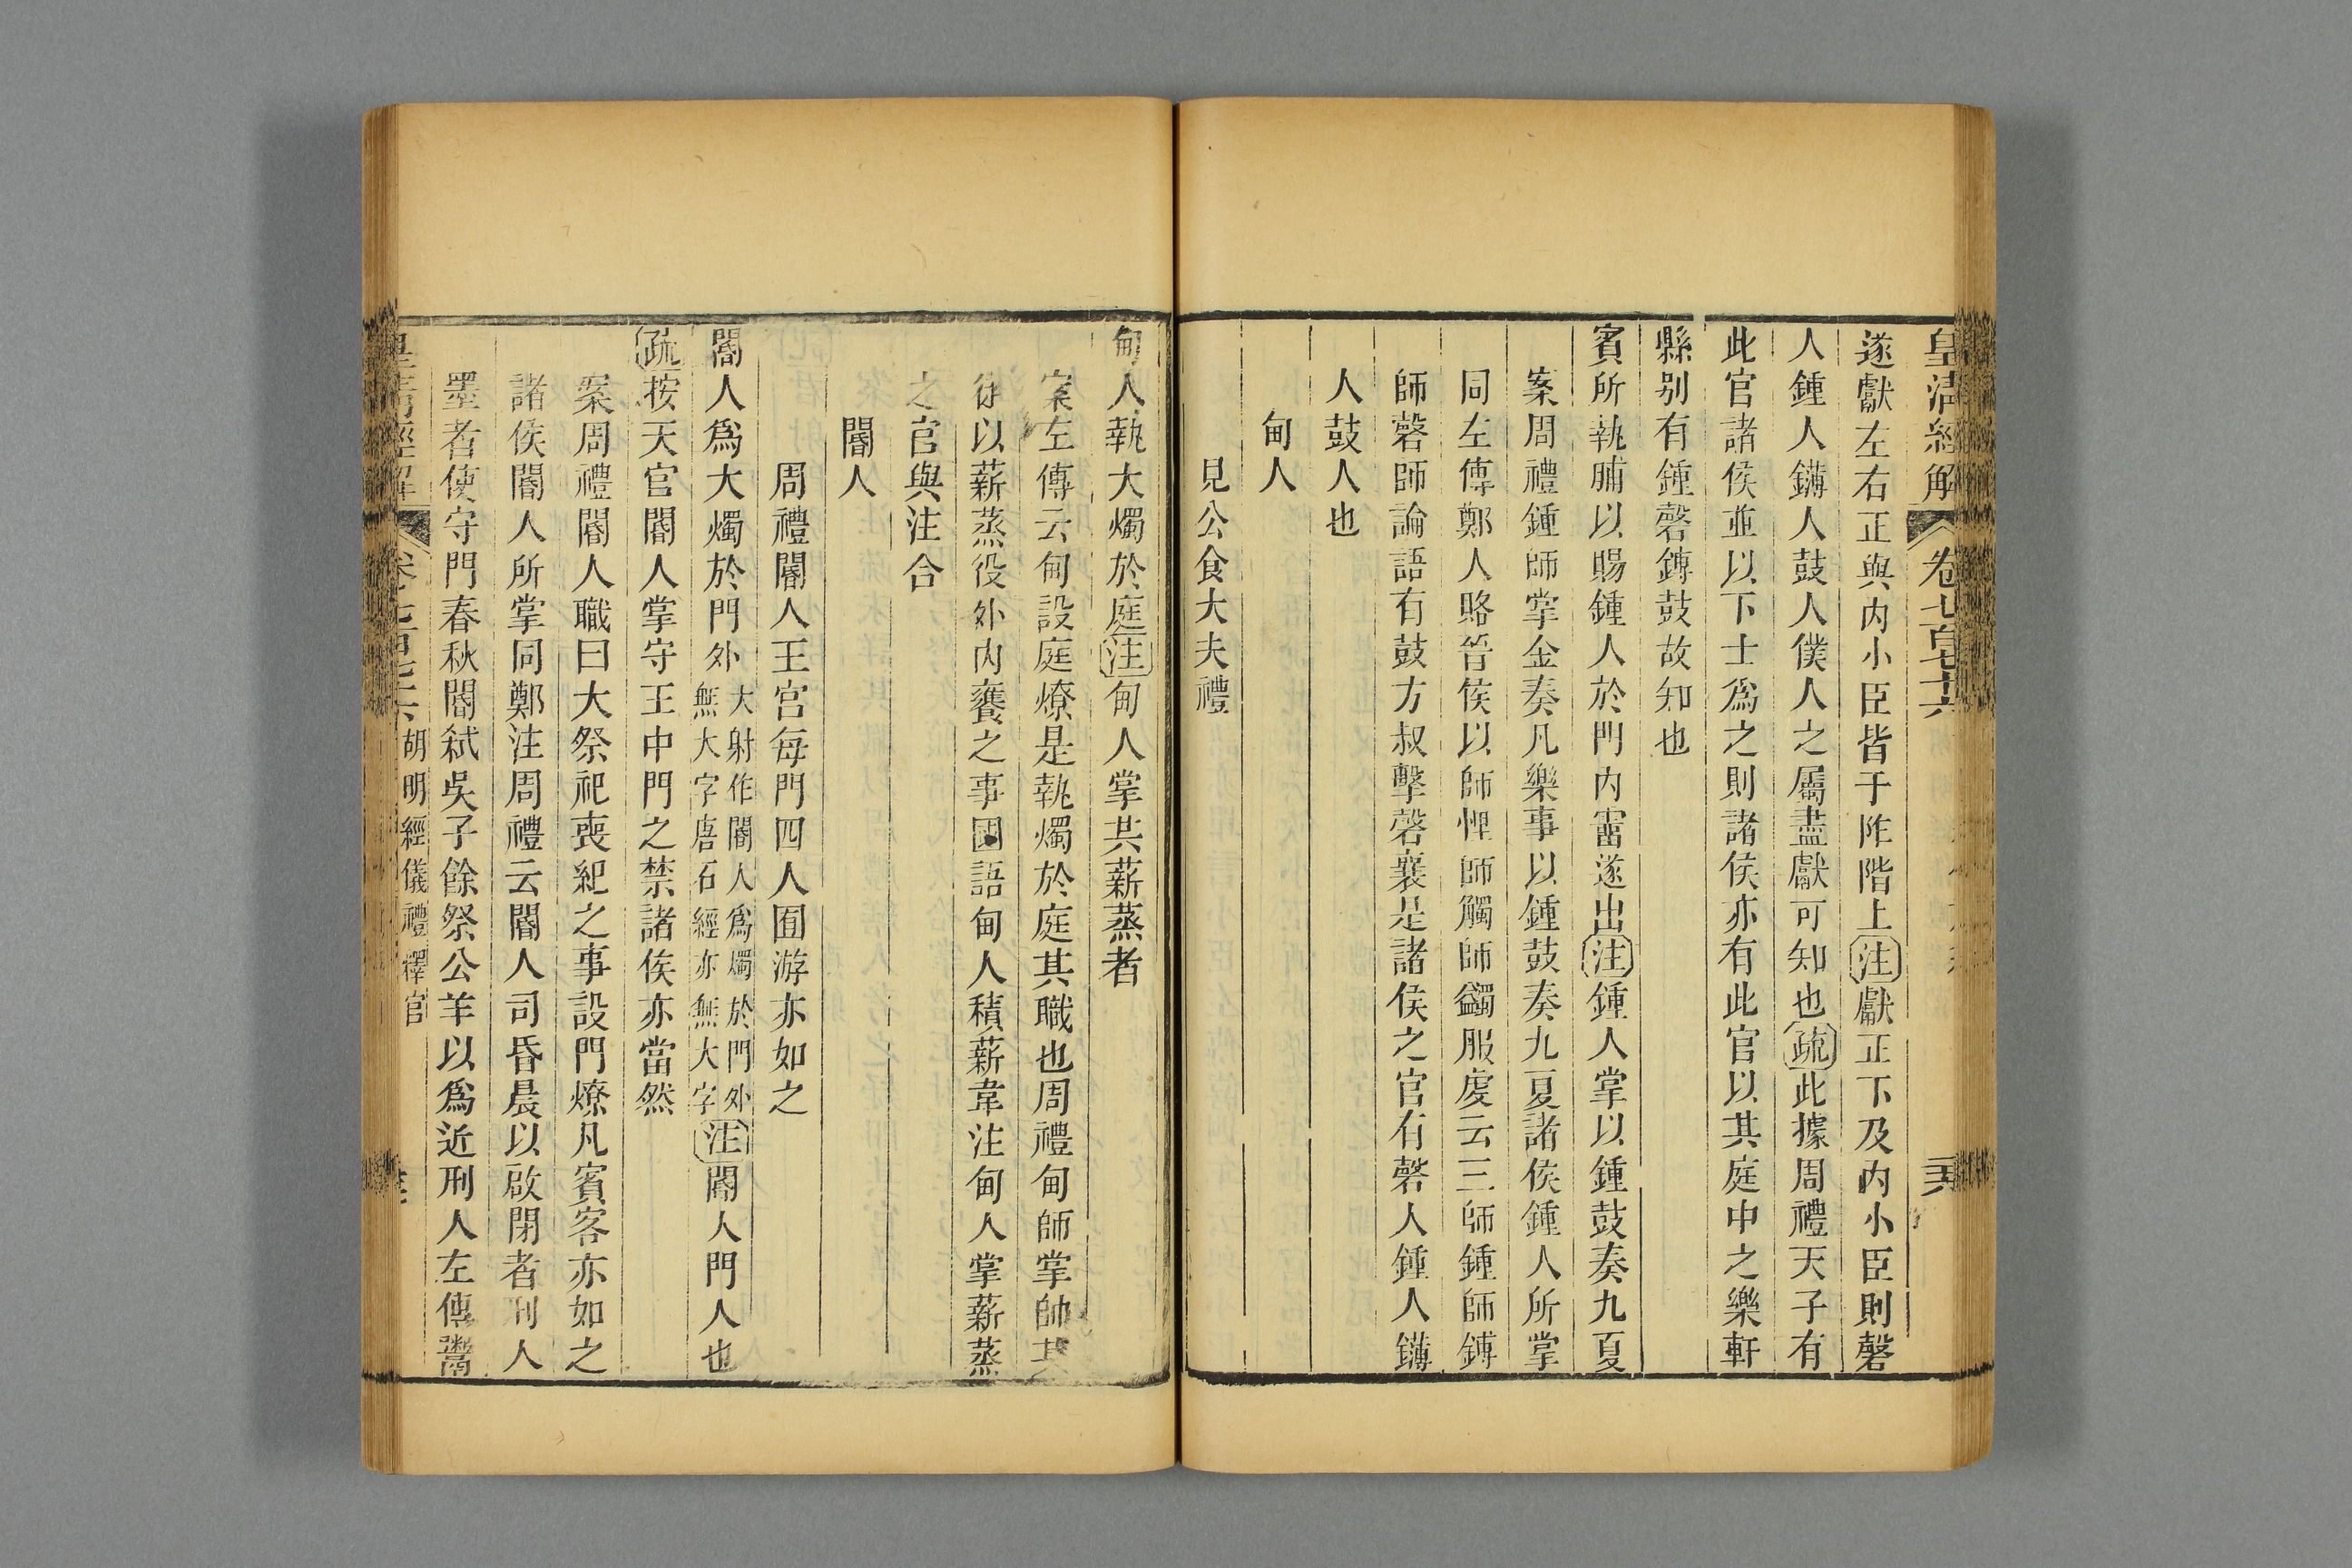 皇清經解 卷七百七十六 二六
遂獻左右正與內小臣皆于阼階上注獻正下及內小臣則磬
人鍾人鏄人鼓人僕人之屬盡獻可知也疏此據周禮天子有
此官諸侯並以下士爲之則諸侯亦有此官以其庭中之樂軒
縣别有鍾磬鏄鼓故知也
賓所執脯以賜鍾人於門內霤遂出注鍾人掌以鍾鼓奏九夏
案周禮鍾師掌金奏凡樂事以鍾鼓奏九夏諸侯鍾人所掌
同左傳鄭人賂晉侯以師悝師觸師蠲服虔云三師鍾師鏄
師磬師論語有鼓方叔擊磬襄是諸侯之官有磬人鍾人鏄
人鼓人也
甸人
見公食大夫禮
甸人執大燭於庭注甸人掌共薪蒸者
案左傳云甸設庭燎是執燭於庭其職也周禮甸師掌帥其
徒以薪蒸役外內饔之事國語甸人積薪韋注甸人掌薪蒸
之官與注合
閽人
周禮閽人王宮每門四人囿游亦如之
閽人爲大燭於門外大射作閽人爲燭於門外無大字唐石經亦無大字注閽人門人也
疏按天官閽人掌守王中門之禁諸侯亦當然
案周禮閽人職曰大祭祀喪紀之事設門燎凡賓客亦如之
諸侯閽人所掌同鄭注周禮云閽人司昏晨以啟閉者刑人
墨者使守門春秋閽弒吳子餘祭公羊以爲近刑人左傳鬻
皇清經解 卷七百七十六 胡明經儀禮釋官